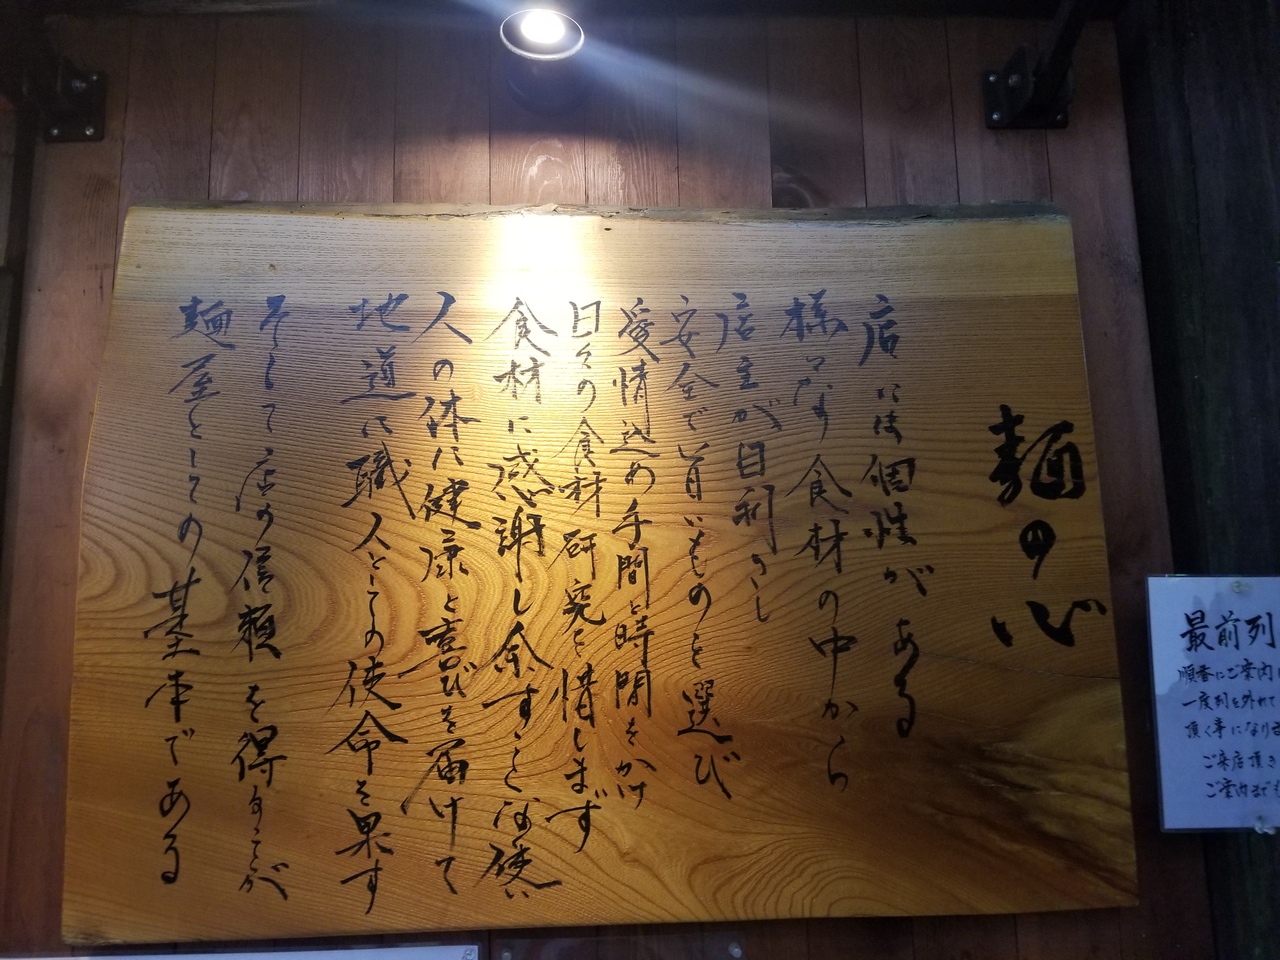 麺の心
店には個性がある
様々な食材の中から
店主が目利きし
安全で旨いものを選び
愛情込め手間と時間をかけ
日々の食材研究を惜しまず
食材に感謝し余すことなく使い
人の体に健康と喜びを届けて
地道に職人としての使命を果す
そして店の信頼を得ることが
麺屋としての基本である
最前列
順番にご案内
一度列を外れて
頂く事になります
ご来店頂き
ご案内までも